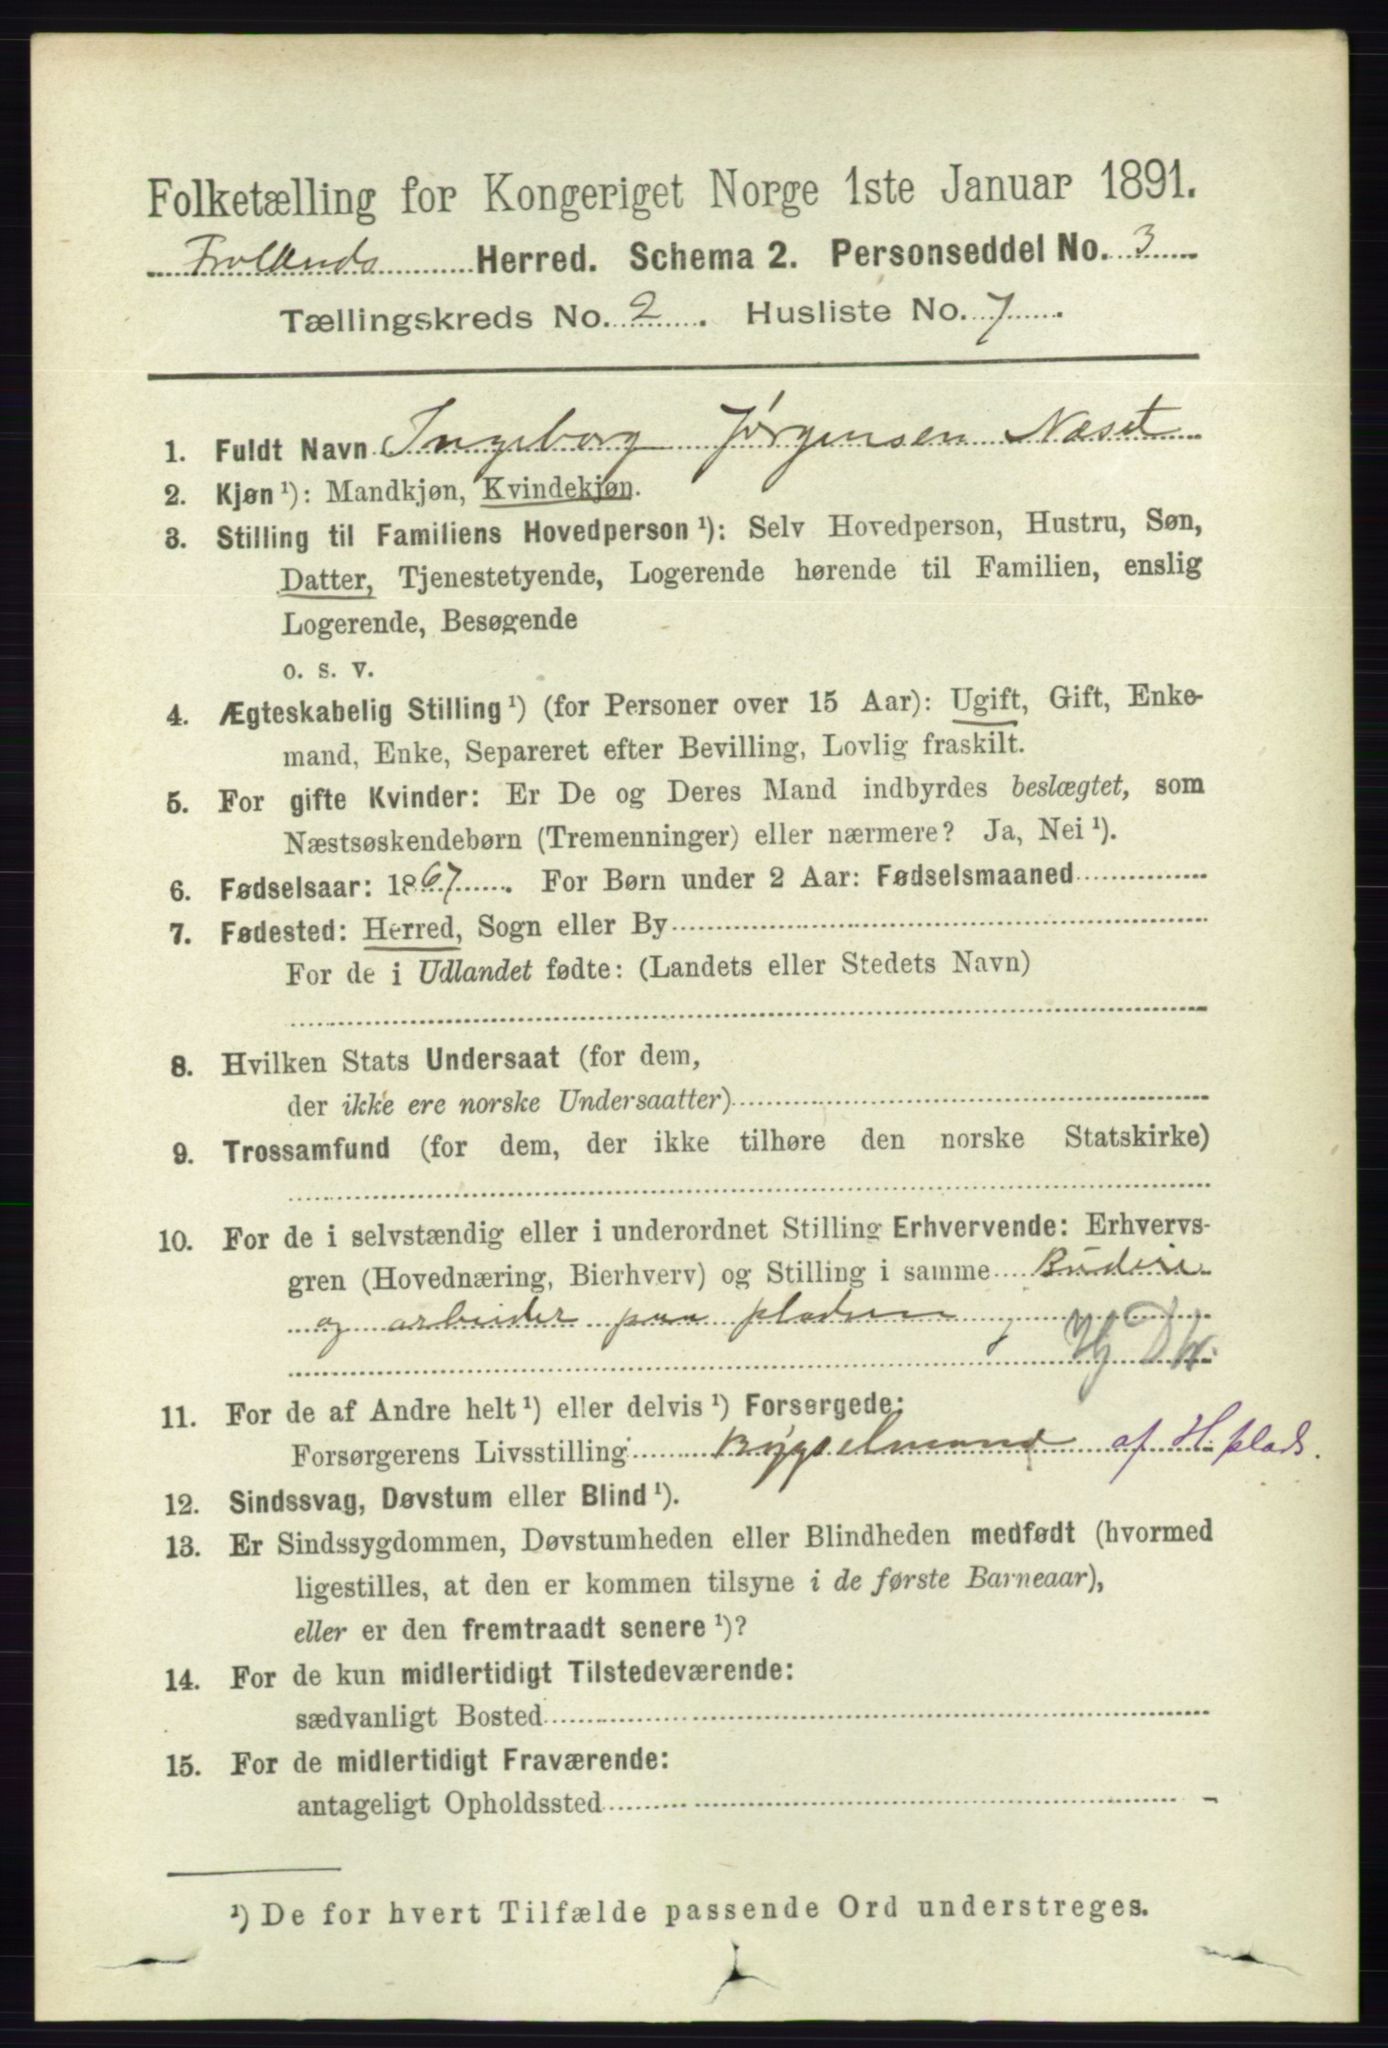 Folketælling for Kongeriget Norge 1ste Januar 1891.
Frolands Herred. Schema 2. Personseddel No. 3
Tællingskreds No. 2. Husliste No. 7.
1. Fuldt Navn Ingeborg Jørgensen Næset
2. Kjøn ¹): Mandkjøn, Kvindekjøn.
3. Stilling til Familiens Hovedperson ¹): Selv Hovedperson, Hustru, Søn,
Datter, Tjenestetyende, Logerende hørende til Familien, enslig
Logerende, Besøgende
o. s. v.
4. Ægteskabelig Stilling ¹) (for Personer over 15 Aar): Ugift, Gift, Enke-
mand, Enke, Separeret efter Bevilling, Lovlig fraskilt.
5. For gifte Kvinder: Er De og Deres Mand indbyrdes beslægtet, som
Næstsøskendebørn (Tremenninger) eller nærmere? Ja, Nei ¹).
6. Fødselsaar: 1867. For Børn under 2 Aar: Fødselsmaaned
7. Fødested: Herred, Sogn eller By
For de i Udlandet fødte: (Landets eller Stedets Navn)
8. Hvilken Stats Undersaat (for dem,
der ikke ere norske Undersaatter)
9. Trossamfund (for dem, der ikke tilhøre den norske Statskirke)
10. For de i selvstændig eller i underordnet Stilling Erhvervende: Erhvervs-
gren (Hovednæring, Bierhverv) og Stilling i samme Budeie
og arbeider paa pladsen
11. For de af Andre helt ¹) eller delvis ¹) Forsørgede:
Forsørgerens Livsstilling Bygselmand af H. plads.
12. Sindssvag, Døvstum eller Blind ¹).
13. Er Sindssygdommen, Døvstumheden eller Blindheden medfødt (hvormed
ligestilles, at den er kommen tilsyne i de første Barneaar),
eller er den fremtraadt senere ¹)?
14. For de kun midlertidigt Tilstedeværende:
sædvanligt Bosted
15. For de midlertidigt Fraværende:
antageligt Opholdssted
¹) De for hvert Tilfælde passende Ord understreges.